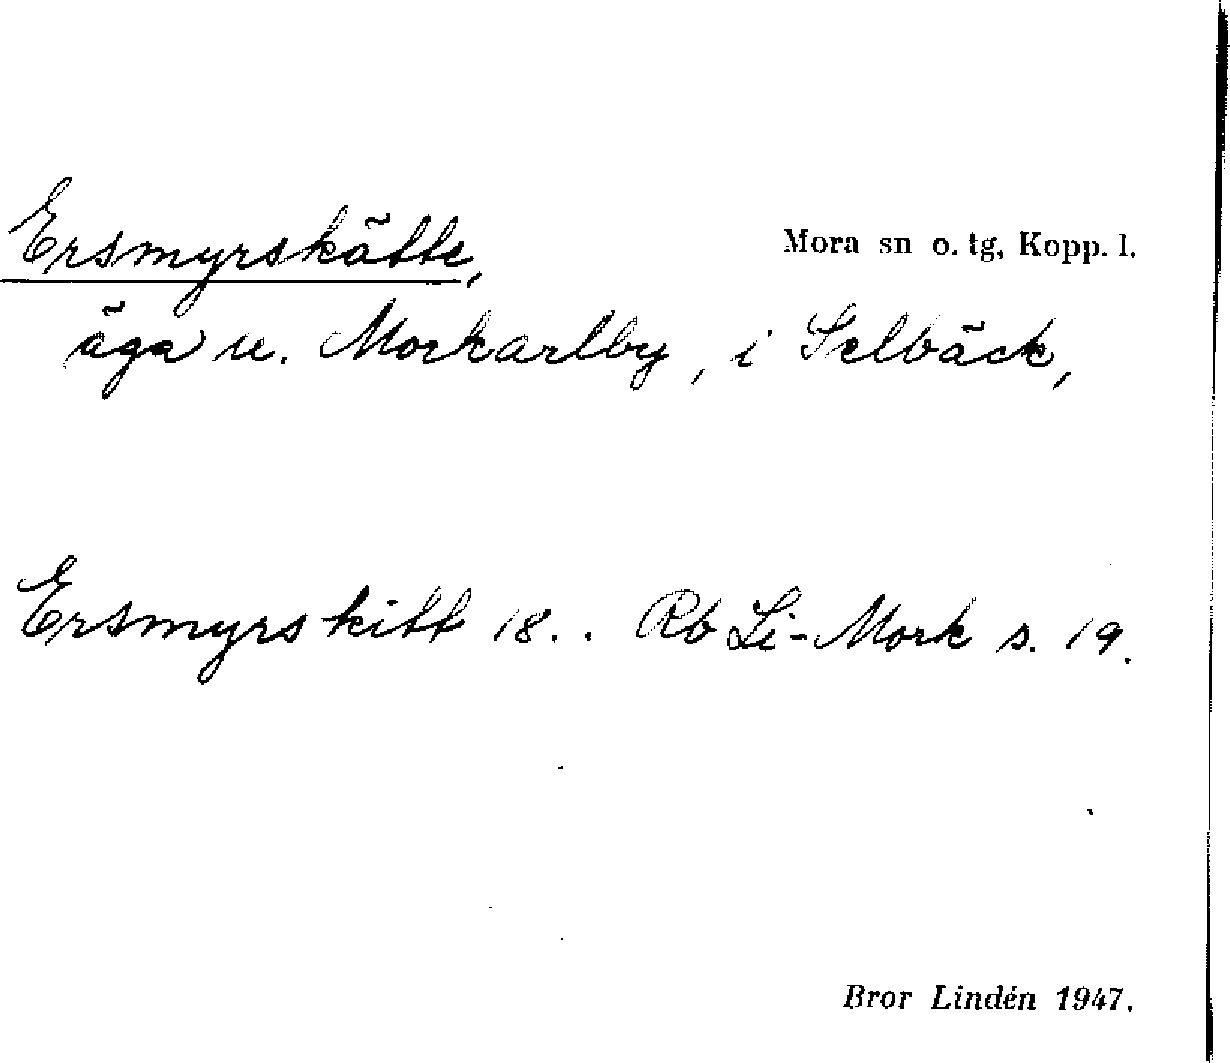 Ersmyrskätte,
Mora sn o. tg, Kopp. l.
äga u. Morkarlby, i Selbäck,
Ersmyrs kitt 18.. Rb Li-Mork s. 19.
Bror Lindén 1947.